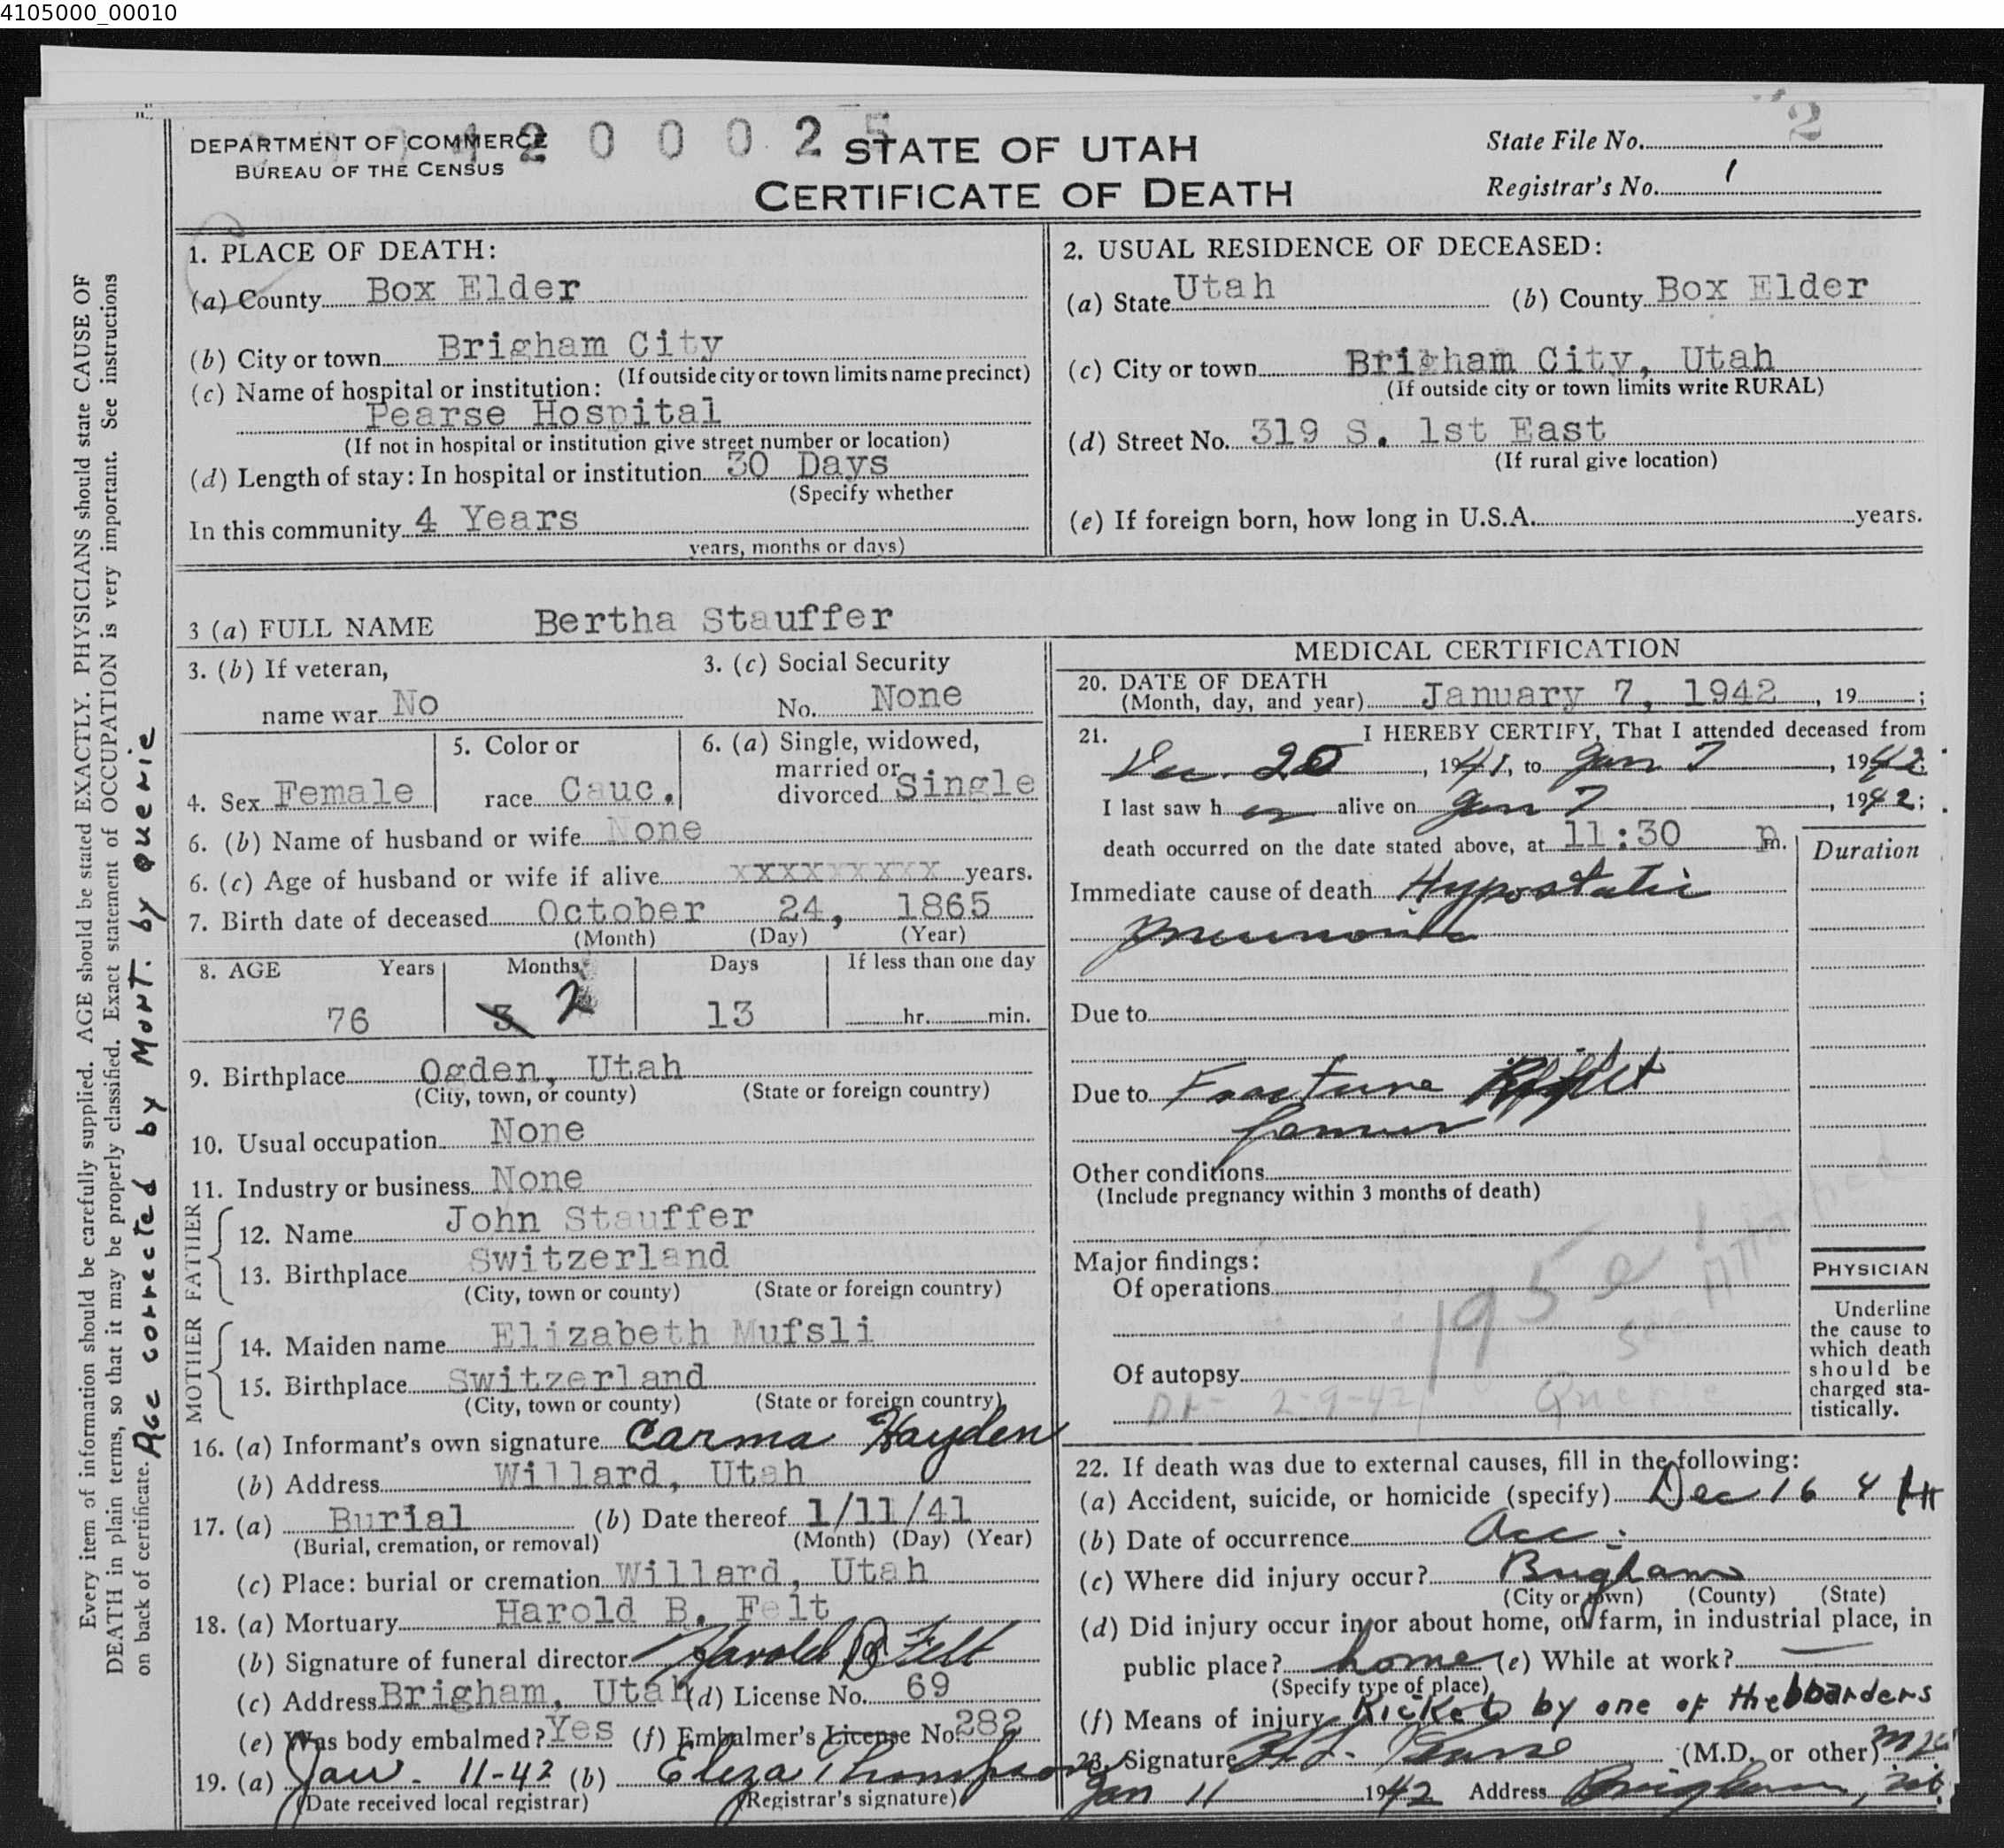 4105000_00010
DEPARTMENT OF COMMERCE
BUREAU OF THE CENSUS
4 2 0 0 0 2 5
STATE OF UTAH
CERTIFICATE OF DEATH
State File No. 2
Registrar's No. 1
Every item of information should be carefully supplied. AGE should be stated EXACTLY. PHYSICIANS should state CAUSE OF
DEATH in plain terms, so that it may be properly classified. Exact statement of OCCUPATION is very important. See instructions
on back of certificate. Age corrected by Mont. by querie
1. PLACE OF DEATH:
(a) County Box Elder
(b) City or town Brigham City
(If outside city or town limits name precinct)
(c) Name of hospital or institution:
Pearse Hospital
(If not in hospital or institution give street number or location)
(d) Length of stay: In hospital or institution 30 Days
(Specify whether
In this community 4 Years
years, months or days)
2. USUAL RESIDENCE OF DECEASED:
(a) State Utah (b) County Box Elder
(c) City or town Brigham City, Utah
(If outside city or town limits write RURAL)
(d) Street No. 319 S. 1st East
(If rural give location)
(e) If foreign born, how long in U.S.A. years.
3 (a) FULL NAME Bertha Stauffer
3. (b) If veteran,
name war No
3. (c) Social Security
No. None
4. Sex Female
5. Color or
race Cauc.
6. (a) Single, widowed,
married or
divorced Single
6. (b) Name of husband or wife None
6. (c) Age of husband or wife if alive xxxxxxxxx years.
7. Birth date of deceased October 24, 1865
(Month) (Day) (Year)
8. AGE Years Months Days If less than one day
76 3 2 13 hr. min.
9. Birthplace Ogden, Utah
(City, town, or county) (State or foreign country)
10. Usual occupation None
11. Industry or business None
FATHER
12. Name John Stauffer
13. Birthplace Switzerland
(City, town or county) (State or foreign country)
MOTHER
14. Maiden name Elizabeth Mufsli
15. Birthplace Switzerland
(City, town or county) (State or foreign country)
16. (a) Informant's own signature Carma Hayden
(b) Address Willard, Utah
17. (a) Burial (b) Date thereof 1/11/41
(Burial, cremation, or removal) (Month) (Day) (Year)
(c) Place: burial or cremation Willard, Utah
18. (a) Mortuary Harold B. Felt
(b) Signature of funeral director Harold B Felt
(c) Address Brigham, Utah (d) License No. 69
(e) Was body embalmed? Yes (f) Embalmer's License No. 282
19. (a) Jan. 11-42 (b) Eliza Thompson
(Date received local registrar) (Registrar's signature)
MEDICAL CERTIFICATION
20. DATE OF DEATH
(Month, day, and year) January 7, 1942, 19 ;
21. I HEREBY CERTIFY, That I attended deceased from
Dec. 20, 1941, to Jan 7, 1942;
I last saw her alive on Jan 7, 1942;
death occurred on the date stated above, at 11:30 p m.
Duration
Immediate cause of death Hypostatic
pneumonia
Due to
Due to Fracture left
femur
Other conditions
(Include pregnancy within 3 months of death)
Major findings:
Of operations
195e
See Attached
Querie
Of autopsy
2-9-42
PHYSICIAN
Underline
the cause to
which death
should be
charged sta-
tistically.
22. If death was due to external causes, fill in the following:
(a) Accident, suicide, or homicide (specify) Dec 16 41
(b) Date of occurrence Acc.
(c) Where did injury occur? Brigham
(City or town) (County) (State)
(d) Did injury occur in or about home, on farm, in industrial place, in
public place? home (e) While at work?
(Specify type of place)
(f) Means of injury Kicked by one of the boarders
23. Signature Pearse (M.D. or other) MD
Jan 11 1942 Address Brigham, Ut.